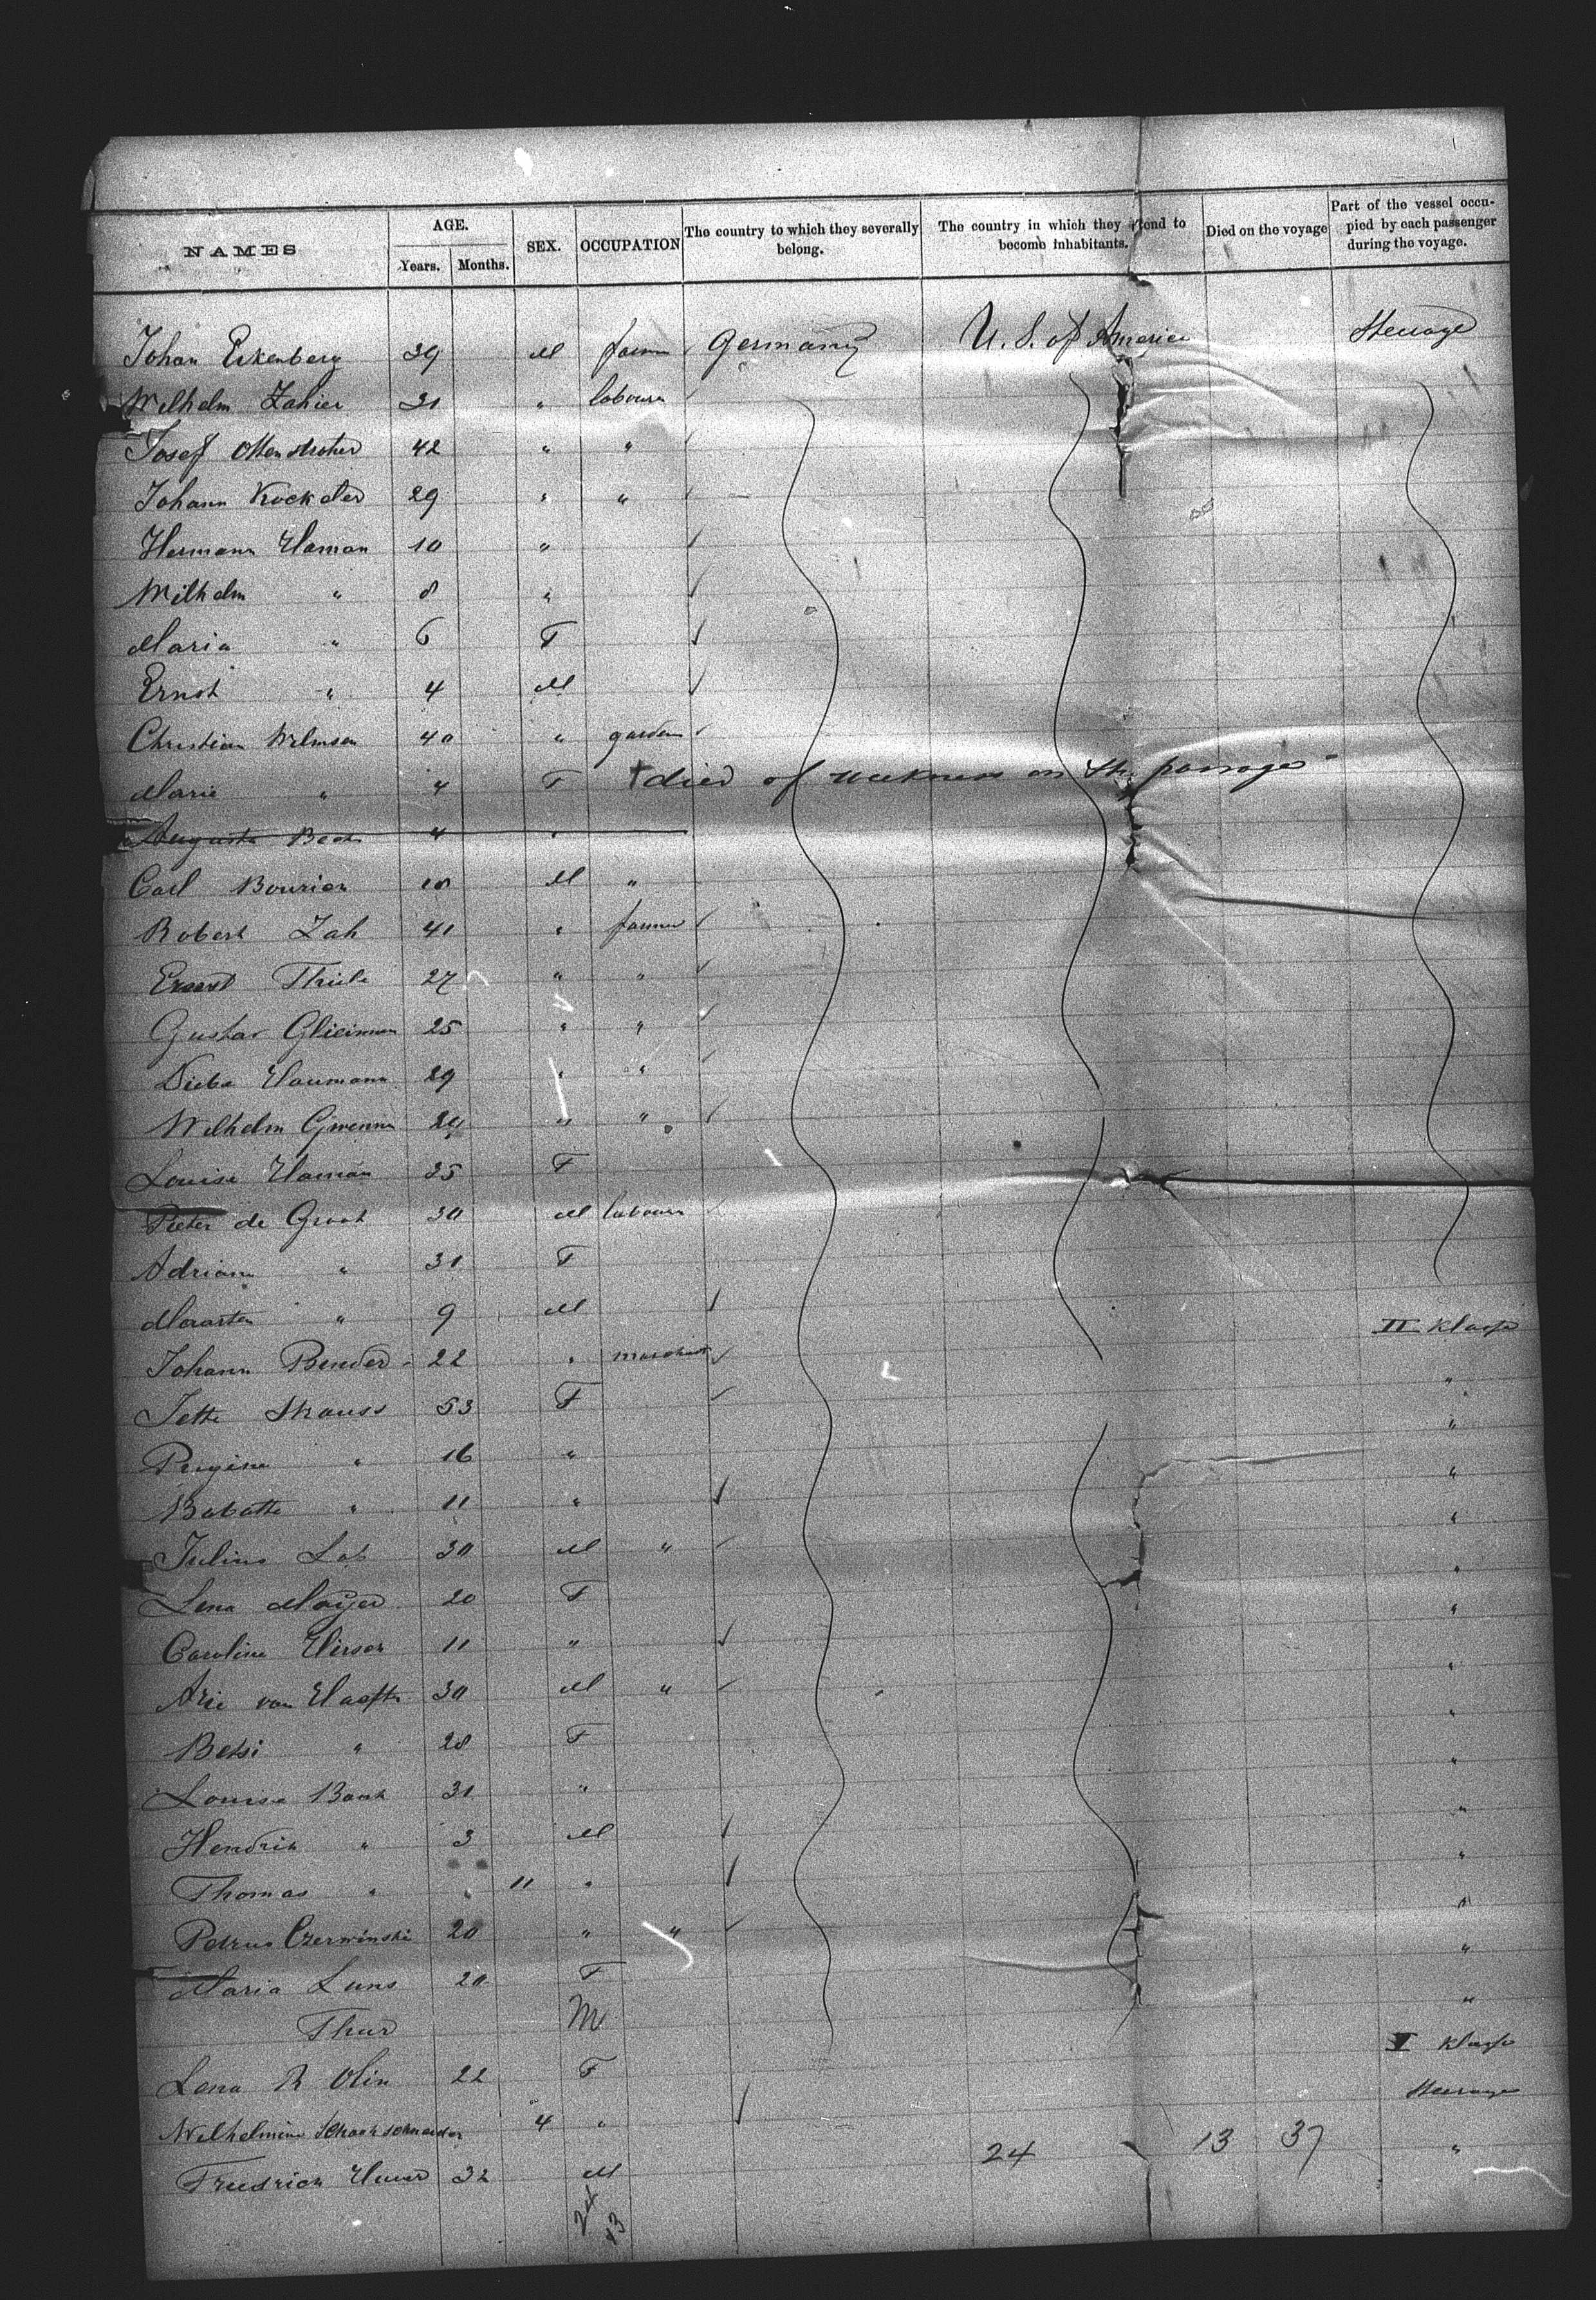 NAMES AGE. SEX. OCCUPATION The country to which they severally belong. The country in which they intend to become inhabitants. Died on the voyage Part of the vessel occupied by each passenger during the voyage.
Years. Months.
Johan Eikenberg 39 M farmer Germany U. S. of America Steerage
Wilhelm Zahier 31 " labourer
Josef 42 " "
Johann 29 " "
Hermann Haman 10 "
Wilhelm " 8 "
Maria " 6 F
Ernst " 4 M
Christian Wilmsen 40 " garden
Marie " 4 F † died of weekness on the passage
Auguste 4 "
Carl Bourien 18 M "
Robert Zah 41 " farmer
Ernst Thiele 27 " "
Gustav 25 " "
Haumann 29 " "
Wilhelm 24 " "
Louise Haman 25 F
Pieter de Groot 30 M labourer
Adriana " 31 F
Maarten " 9 M
II Klasse
Johann Bender 22 " merchant "
Jette Strauss 53 F "
" 16 " "
Babette " 11 " "
Julius 30 M " "
Lena Mayer 20 F "
Caroline Hirsch 11 " "
Arie van Haaften 30 M " "
Betsi " 28 F "
Louise Bank 31 " "
Hendrik " 3 M "
Thomas " " 11 " "
Petrus Czerwinski 20 " " "
Maria Luns 20 F "
Thur M
Lena R Olin 22 F I Klasse
Wilhelmine 4 " Steerage
Friedrich 32 M "
24 13 37
24
13